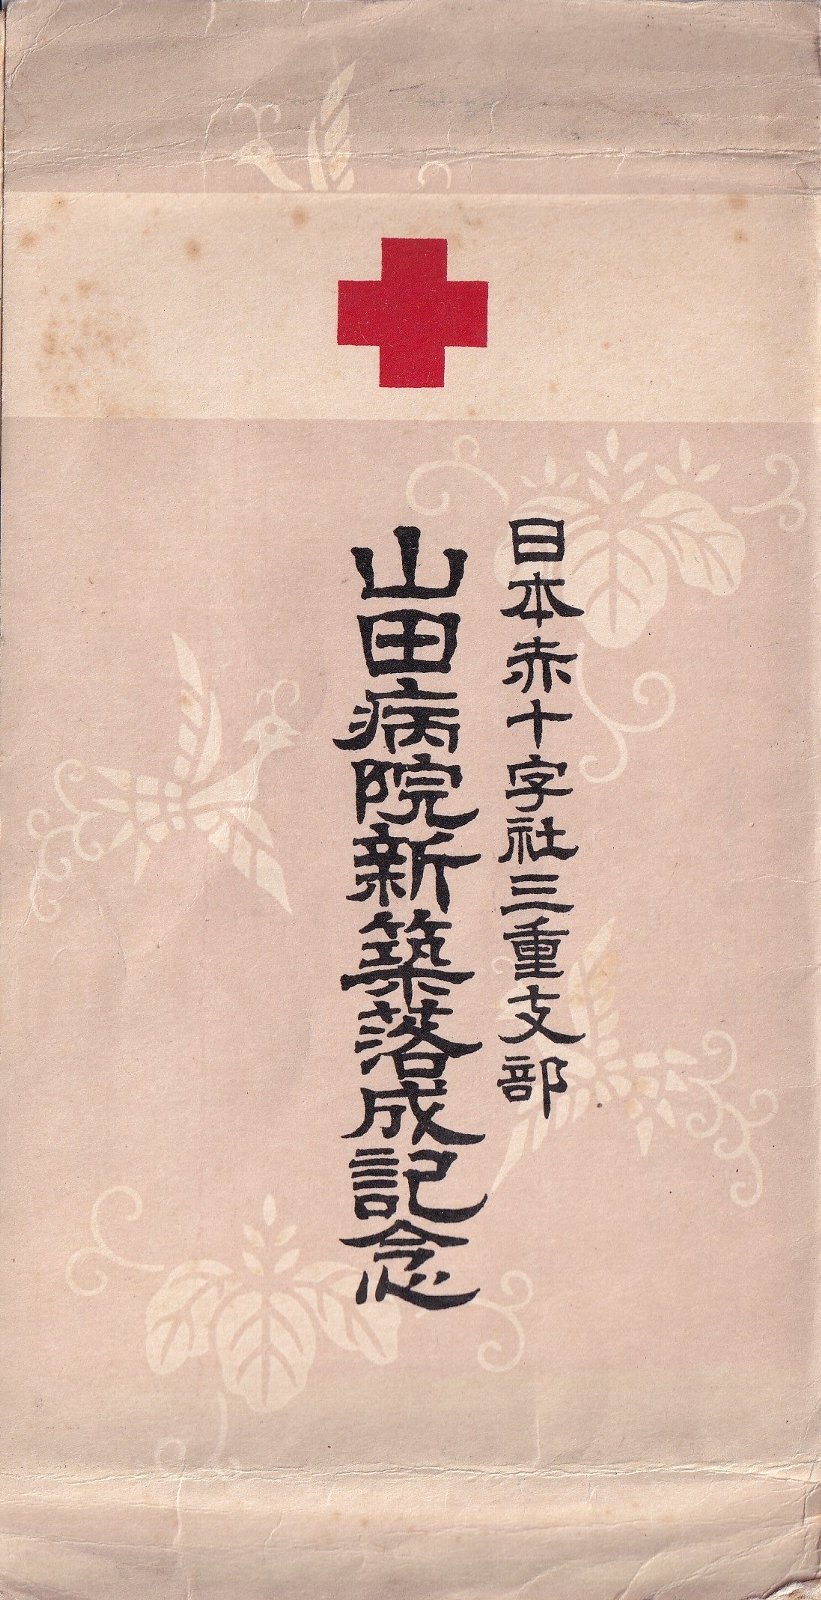 日本赤十字社三重支部
山田病院新築落成記念